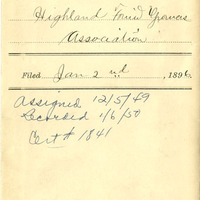 Highland Fruit Growers
Association
Filed Jan 2nd, 1896.
Assigned 12/5/49
Recorded 1/6/50
Cert # 1841